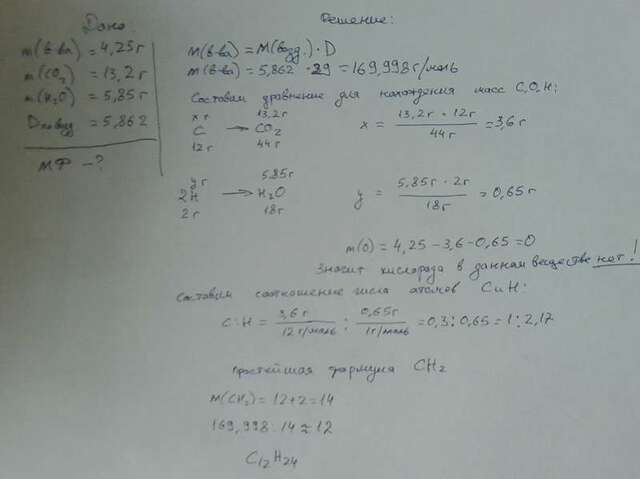 Дано:
m(в-ва) = 4,25г
m(CO₂) = 13,2г
m(H₂O) = 5,85г
Dповозд = 5,862
МФ - ?
Решение:
M(в-ва) = M(возд.) · D
M(в-ва) = 5,862 · 29 = 169,998 г/моль
Составим уравнение для нахождения масс C,O,H:
x г 13,2г
C → CO₂
12 г 44г
x = 13,2г · 12г / 44г = 3,6г
y г 5,85г
2H → H₂O
2г 18г
y = 5,85г · 2г / 18г = 0,65г
m(O) = 4,25 - 3,6 - 0,65 = 0
Значит кислорода в данном веществе нет!
Составим соотношение числа атомов C и H:
C:H = 3,6г / 12г/моль : 0,65г / 1г/моль = 0,3 : 0,65 = 1 : 2,17
простейшая формула CH₂
M(CH₂) = 12+2 = 14
169,998 : 14 ≈ 12
C₁₂H₂₄